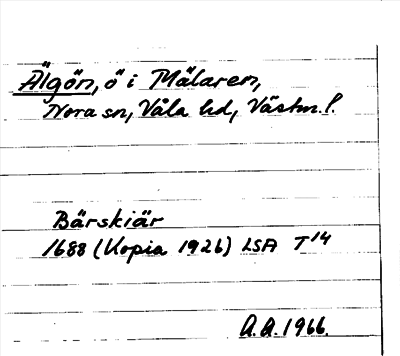 Älgön, ö i Mälaren,
Nora sn, Våla hd, Västm. l.
Bärskiär
1688 (Kopia 1926) LSA T14
A.A. 1966.